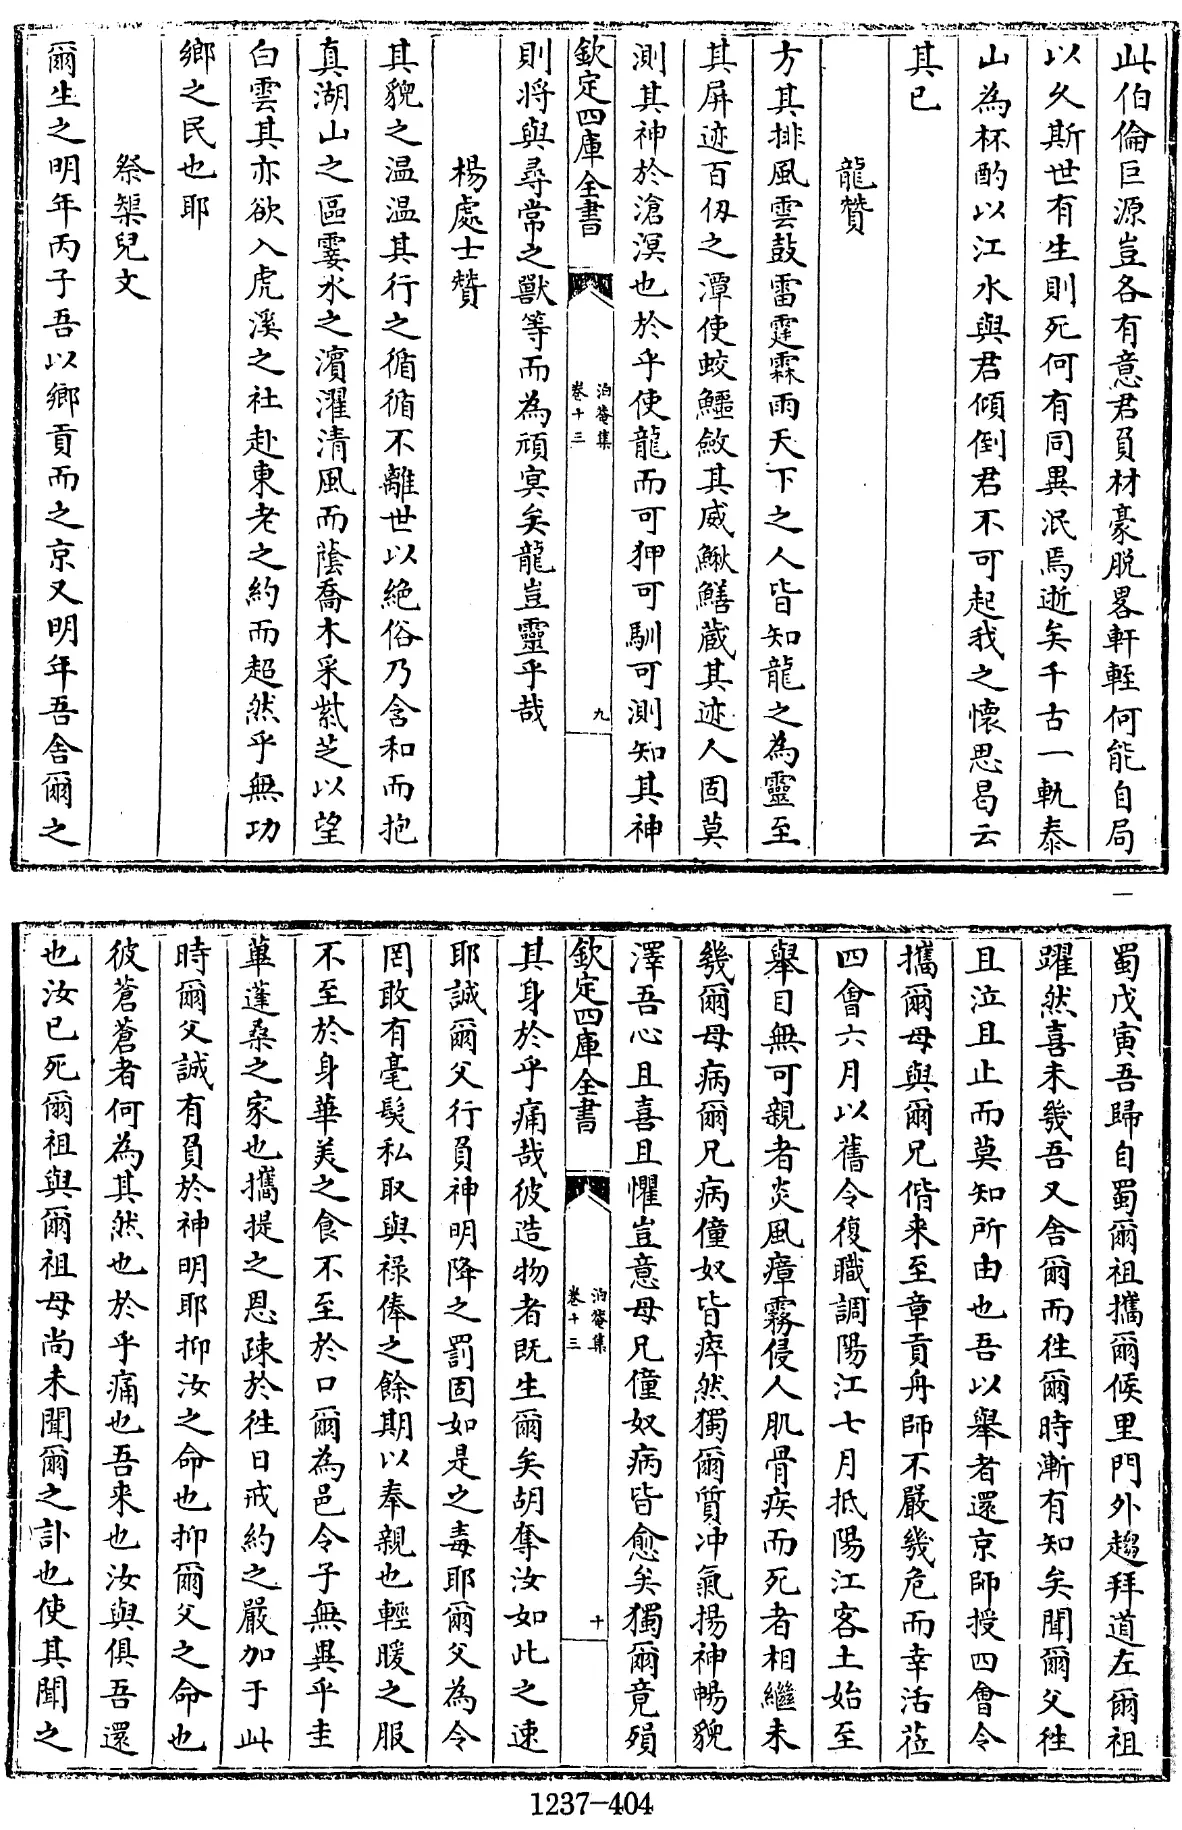 此伯倫巨源豈各有意君負材豪脱畧軒輊何能自局
以久斯世有生則死何有同異泯焉逝矣千古一軌泰
山為杯酌以江水與君傾倒君不可起我之懷思曷云
其已
龍贊
方其排風雲鼓雷霆霖雨天下之人皆知龍之為靈至
其屏迹百仭之潭使蛟鱷斂其威鰍鱔蔵其迹人固莫
測其神於滄溟也於乎使龍而可狎可馴可測知其神
欽定四庫全書
泊菴集
卷十三
九
則将與尋常之獸等而為頑冥矣龍豈靈乎哉
楊處士贊
其貌之温温其行之循循不離世以絶俗乃含和而抱
真湖山之區霅水之濵濯清風而蔭喬木采紫芝以望
白雲其亦欲入虎溪之社赴東老之約而超然乎無功
鄉之民也耶
祭槼兒文
爾生之明年丙子吾以鄉貢而之京又明年吾舍爾之
蜀戊寅吾歸自蜀爾祖攜爾候里門外趨拜道左爾祖
躍然喜未幾吾又舍爾而往爾時漸有知矣聞爾父往
且泣且止而莫知所由也吾以舉者還京師授四會令
攜爾母與爾兄偕来至章貢舟師不嚴幾危而幸活莅
四會六月以舊令復職調陽江七月抵陽江客土始至
舉目無可親者炎風瘴霧侵人肌骨疾而死者相繼未
幾爾母病爾兄病僮奴皆瘁然獨爾質冲氣揚神暢貌
澤吾心且喜且懼豈意母兄僮奴病皆愈矣獨爾竟殞
欽定四庫全書
泊菴集
卷十三
十
其身於乎痛哉彼造物者既生爾矣胡奪汝如此之速
耶誠爾父行負神明降之罰固如是之毒耶爾父為令
罔敢有毫髮私取與禄俸之餘期以奉親也輕暖之服
不至於身華美之食不至於口爾為邑令子無異乎圭
蓽蓬桑之家也攜提之恩疎於往日戒約之嚴加于此
時爾父誠有負於神明耶抑汝之命也抑爾父之命也
彼蒼蒼者何為其然也於乎痛也吾来也汝與俱吾還
也汝已死爾祖與爾祖母尚未聞爾之訃也使其聞之
1237-404